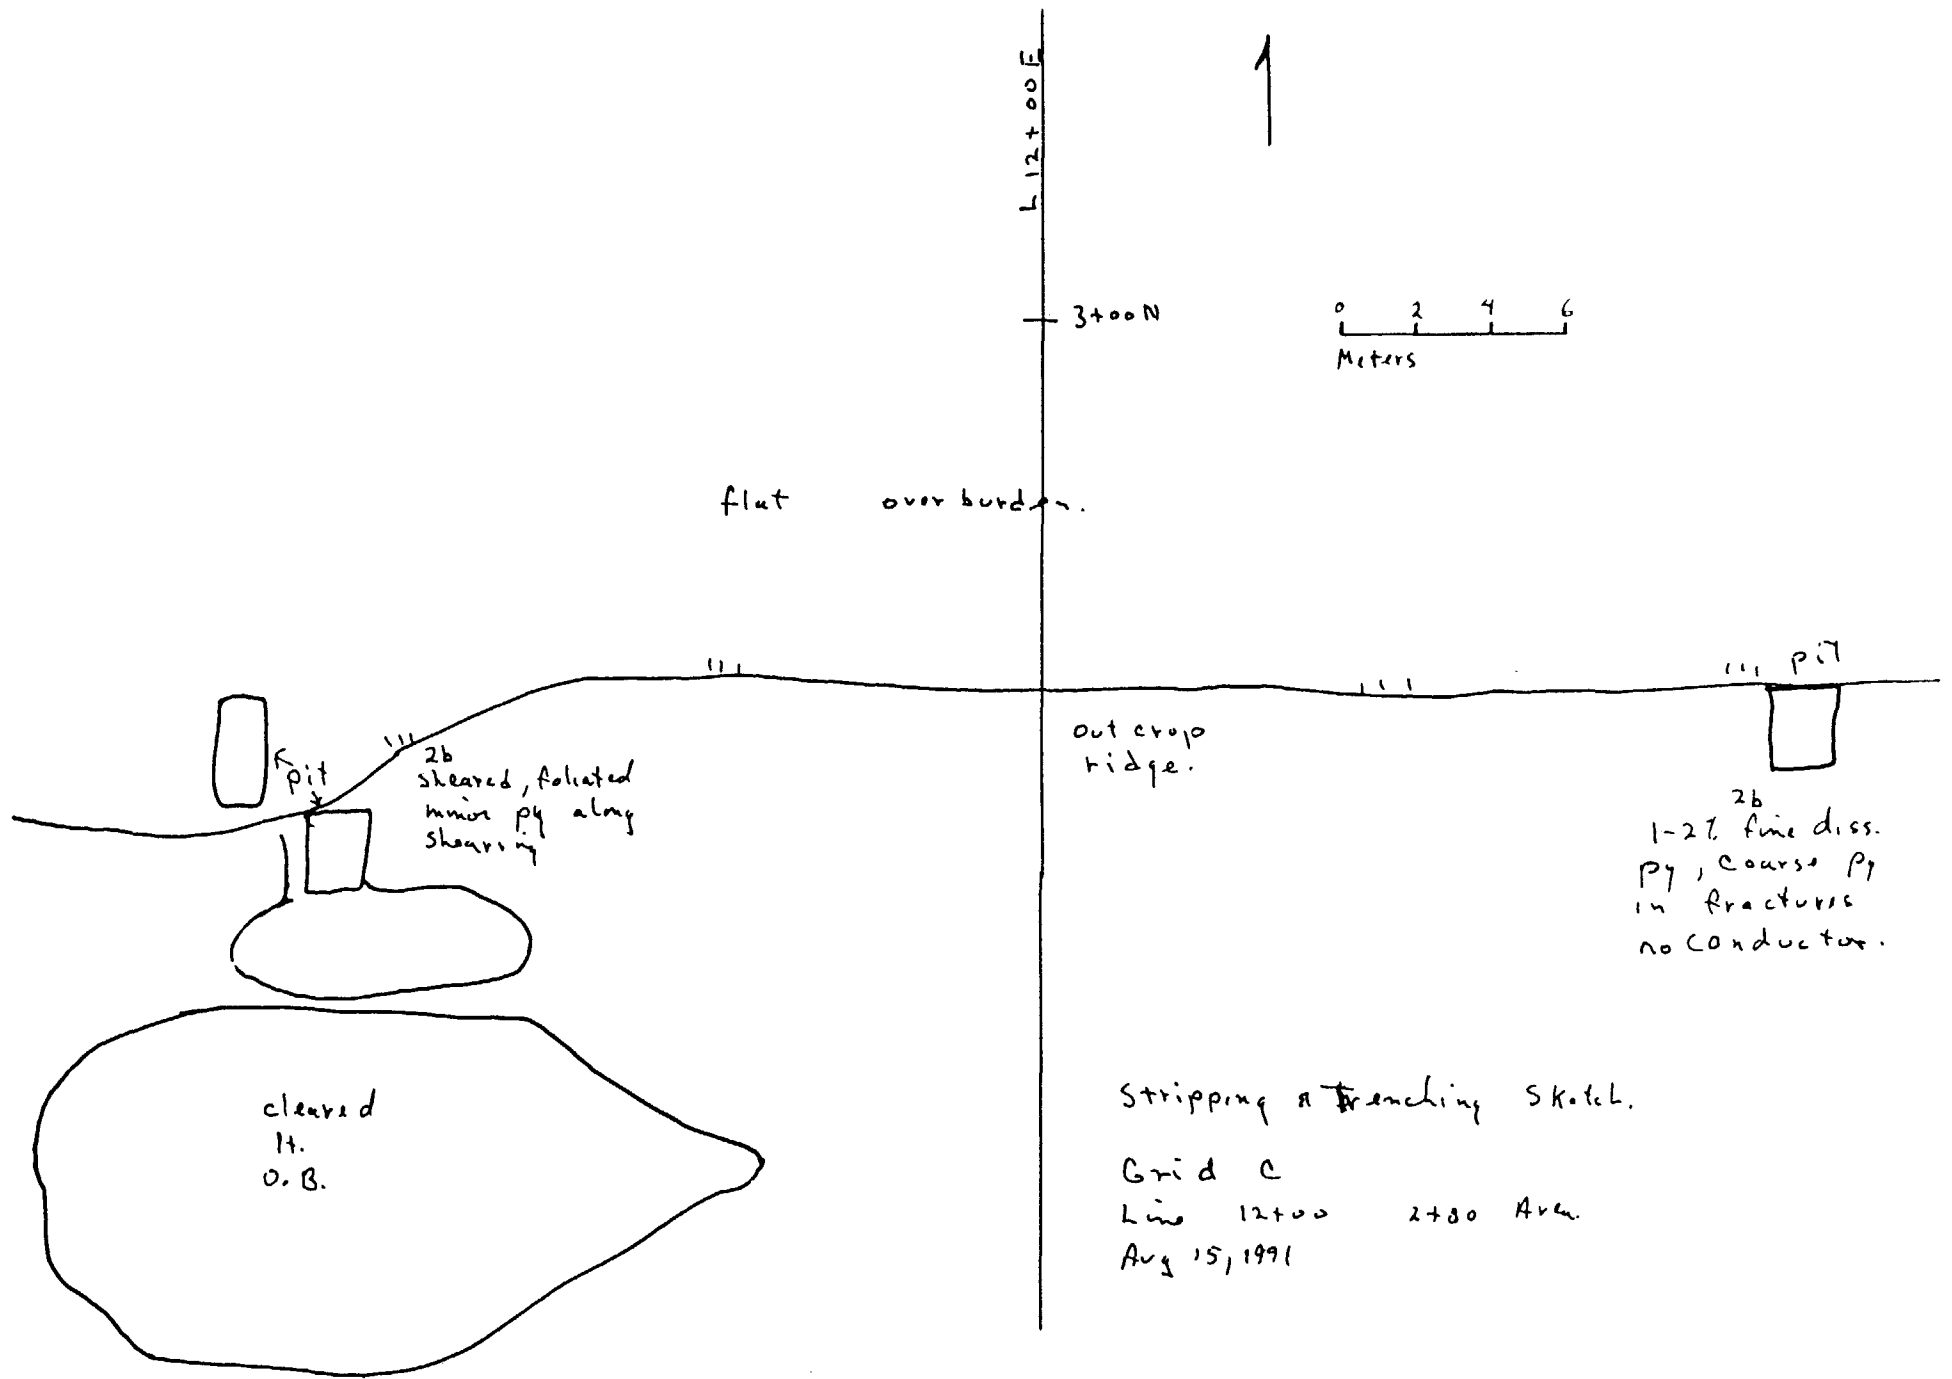 L 12+00E
3+00N
0 2 4 6
Meters
flat overburden.
pit
out crop
ridge.
pit
2b
sheared, foliated
minor py along
shearing
2b
1-2% fine diss.
py, coarse py
in fractures
no conductor.
cleared
lt.
O.B.
Stripping & Trenching Sketch.
Grid C
Line 12+00 2+80 Area.
Aug 15, 1991